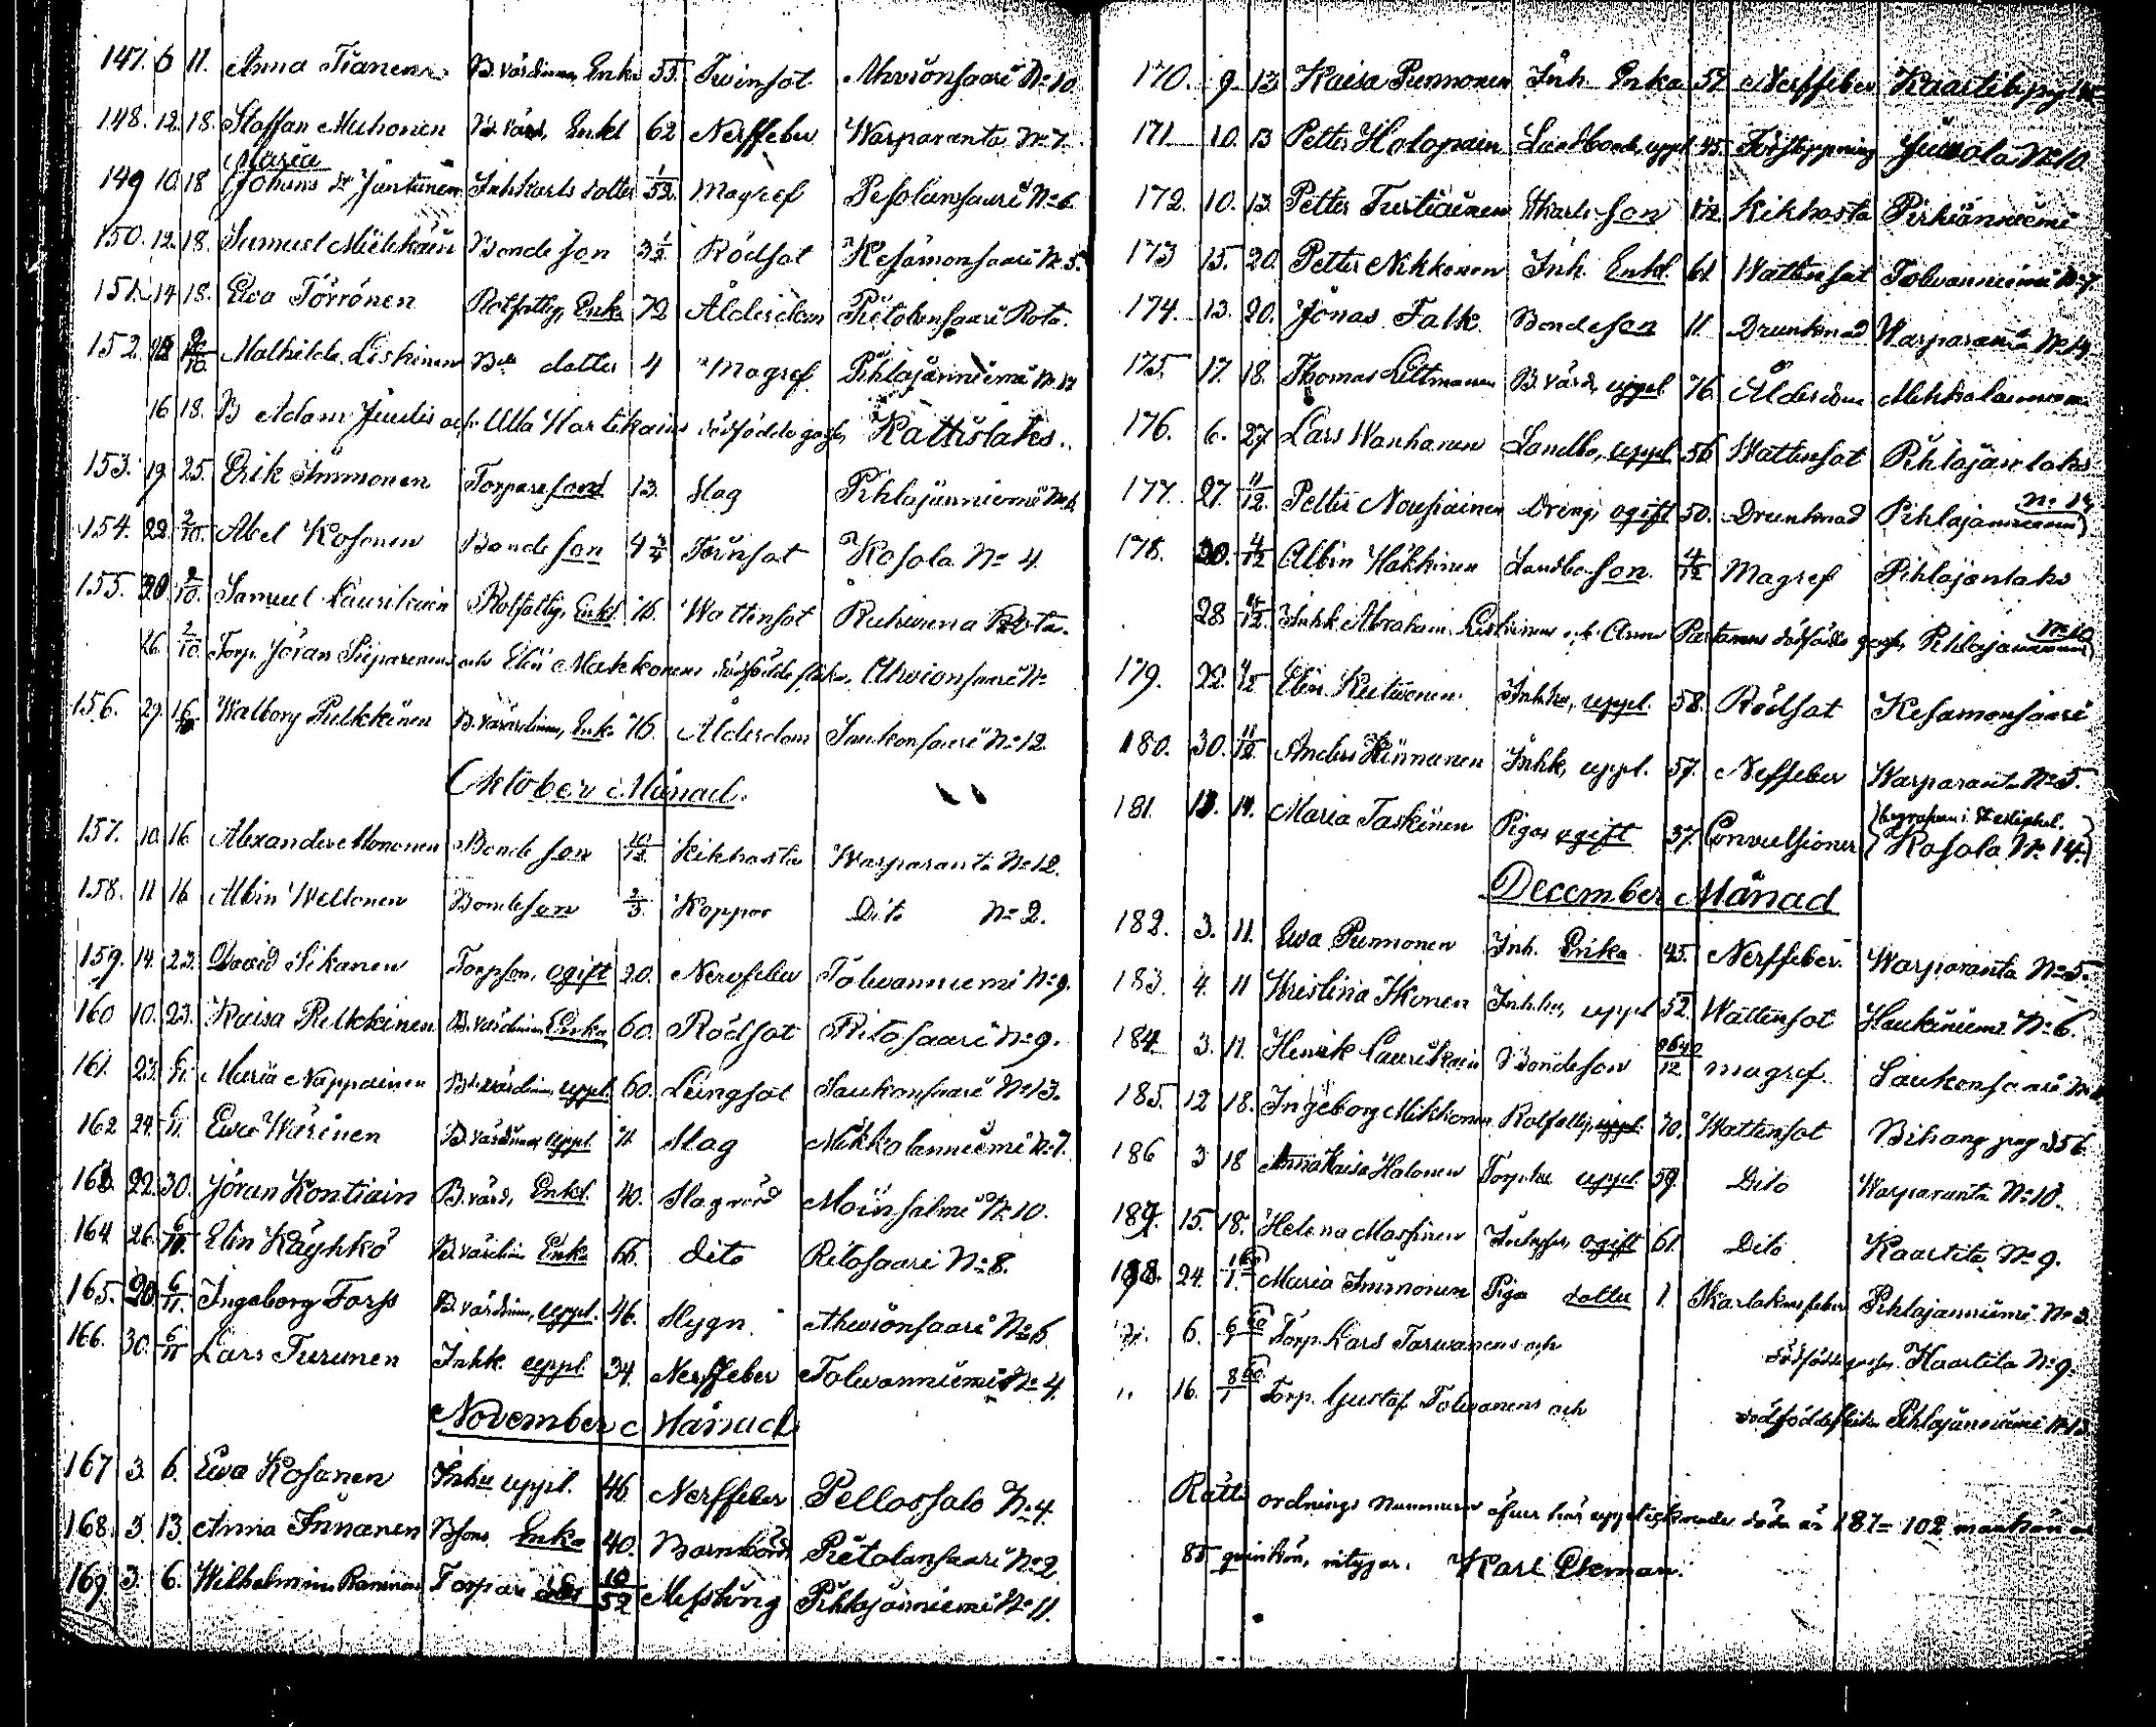 147. 6 11. Anna Tianen B. värdinna, Enka 55 Twinsot Ahvionsaari No 10
148. 12. 18. Staffan Muhonen B. Värd, Enkl 62 Nerffeber Warparanta No 7.
Maria
149 10. 18 Johans Dr Jantunen Inhkarls dotter 1/52. Magref Pesolansaari No 6
150. 12. 18. Samuel Miettinen Bonde son 3 1/2 Rödsot Kesämonsaari No 5.
151. 14 18. Ewa Törrönen Rotfattig, Enka 72 Ålderdom Pietolansaari Rota.
152. 2/10. Mathilda Leskinen Be dotter 4 Magref Pihlajänniemi No 12
16 18. B Adam Juutis och Ulla Hartikains dödfödde gosse, Kattislaks.
153. 19. 25. Erik Immonen Torpare son 13. Slag Pihlajänniemi No 6
154. 22 2/10. Abel Kosonen Bonde son 4 3/4 Twinsot Kosola No 4.
155. 20 2/10. Samuel Laurikain Rotfattig, Enkl 76. Wattensot Ruhvana Rota.
26. 2/10. Torp. Jöran Piiparinens och Elin Makkonens dödfödde flicka, Ahvionsaari No
156. 29. 16/10 Walborg Pulkkinen B. värdinna, Enka 76. Ålderdom Saukonsaari No 12.
Oktober Månad.
157. 10. 16 Alexander Mononen Bonde son 10/12. Kikhosta Warparanta No 12.
158. 11 16 Albin Weltonen Bondeson 2/3. Koppor Dito No 2.
159. 14. 23. David Sikanen Torpson, ogift 20. Nervfeber Tolwanniemi No 9.
160 10. 23. Kaisa Pulkkinen B. värdinna Enka 60. Rödsot Ritosaari No 9.
161. 23. 6/11. Maria Nappainen B. värdinn, uppl. 60. Lungsot Saukonsaari No 13.
162 24. 6/11. Ewa Wärinen B. värdinna uppl. 71 Slag Mikkolanniemi No 7.
163. 22. 30. Jöran Kontiain B. värd, Enkl. 40. Slagvärd Moinsalmi No 10.
164. 26. 6/11. Elin Käyhkö B. värdin Enka 66. dito Ritosaari No 8.
165. 20 6/11. Ingeborg Forss B. värdinn, uppl. 46. Hygn Ahvionsaari No 6.
166. 30. 6/11 Lars Turunen Inhk. uppl. 34. Nerffeber Tolwanniemi No 4.
November Månad
167 3. 6. Ewa Kosonen Inhu uppl. 46. Nerffeber Pellossalo No 4.
168. 3. 13. Anna Innanen Bsons Enka 40. Barnbörd Pietolansaari No 2.
169. 3. 6. Wilhelmina Torpare dotr 10/52 Messling Pihlajänniemi No 11.
170. 9. 13 Kaisa Punnonen Inh. Enka 57 Nerffeber Kaartila
171 10. 13 Petter Holopain Landbonde, uppl. 45. Förstoppning Juvola No 10.
172. 10. 13. Petter Turtiainen Ikarls son 1/12. Kikhosta Pirhiänniemi
173 15. 20. Petter Nikkonen Inh. Enkl. 61. Wattensot Tolwanniemi No 7.
174. 13. 20. Jonas Falk Bondeson 11. Drunknad Warparanta No 14.
175. 17. 18. Thomas Littmanen B. värd, uppl. 76. Ålderdom Mikkolanniemi
176. 6. 27. Lars Wanhanen Landbo, uppl. 56 Wattensot Pihlajänlaks
177. 27. 11/12. Petter Nousiainen Dreng, ogift 50. Drunknad Pihlajanniemi No 14
178. 20. 4/12 Albin Häkkinen Landbo son. 4/12 Magref Pihlajanlaks
28 4/12. Inhk Abraham Leskinens och Anna Partanens dödfödde gosse, Pihlajanniemi No 10
179. 22. 4/12 Elin Kutvonen Inhka, uppl. 58. Rödsot Kesamonsaari
180. 30. 11/12. Anders Hinnonen Inhk, uppl. 57. Neffeber Warparanta No 5.
181. 13. 14. Maria Taskinen Piga ogift 37. Convulsioner Kosola No 14.
December Månad
182. 3. 11. Ewa Punnonen Inh. Enka 45. Nerffeber. Warparanta No 5.
183. 4. 11 Kristina Ikonen Inhhu, uppl 52. Wattensot Haukiniemi No 6.
184 3. 11. Henrik Laurikain Bondeson magref. Saukonsaari
185. 12 18. Ingeborg Mikkonen Rotfattig, uppl. 70. Wattensot Bihang pag 356
186 3 18 Anna Kaisa Halonen Torphu uppl. 59. Dito Warparanta No 10.
187. 15. 18. Helena Maskinen ogift 61. Dito Kaartila No 9.
188. 24. 1/1. 60 Maria Immonen Piga dotter 1. Skarlakansfeber Pihlajanniemi No 3
6. 6/1 60 Torp. Lars Tarvanens och dödfödde gosse. Kaartila No 9.
16. 8/1 60 Torp. Gustaf Tolvanens och dödfödde flicka Pihlajänniemi No 13
Rätta ordnings nummern öfver här upptecknade döda är 187 = 102 mankön och
85 qvinkön, intygar. Karl Ekman.